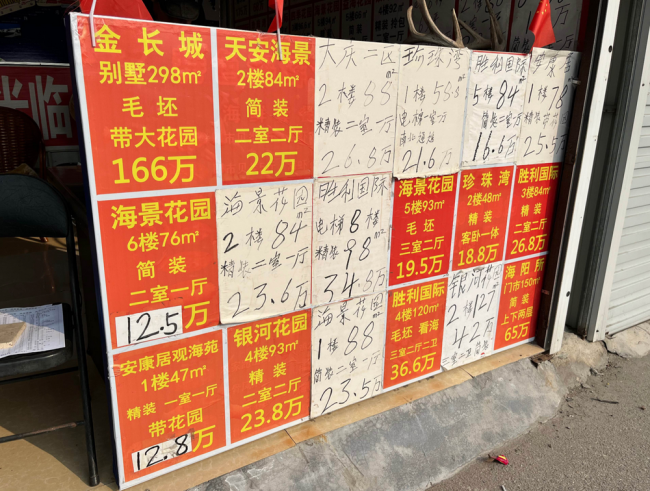 金长城
别墅298m²
毛坯
带大花园
166万
天安海景
2楼84m²
简装
二室二厅
22万
大庆二区
2楼55m²
精装二室一厅
26.8万
1楼
胜利国际
5楼84m²
16.6万
1楼78
25.5万
海景花园
6楼76m²
简装
二室一厅
12.5万
海景花园
2楼84m²
精装二室一厅
23.6万
胜利国际
电梯8楼
精装98m²
34.8万
海景花园
5楼93m²
毛坯
三室二厅
19.5万
珍珠湾
2楼48m²
精装
客卧一体
18.8万
胜利国际
3楼84m²
精装
二室二厅
26.8万
安康居观海苑
1楼47m²
精装 一室一厅
带花园
12.8万
银河花园
4楼93m²
精装
二室二厅
23.8万
海景花园
1楼88m²
23.5万
胜利国际
4楼120m²
毛坯 看海
三室二厅二卫
36.6万
银河花园
2楼127m²
42万
海阳所
门市150m²
简装
上下两层
65万